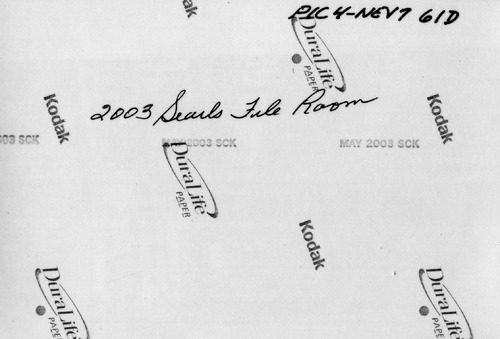 ak
PIC 4-NEV7 61D
DuraLife
PAPER
Kodak
2003 Searls File Room
Kodak
003 SCK
MAY 2003 SCK
MAY 2003 SCK
DuraLife
PAPER
Kodak
DuraLife
PAPER
DuraLife
PAPER